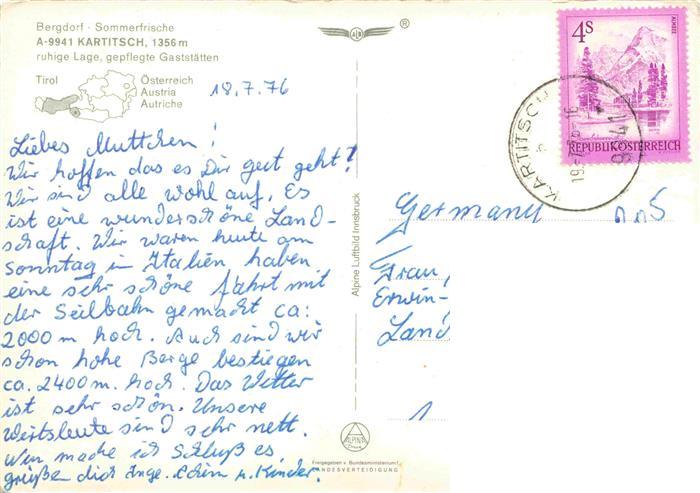 Bergdorf - Sommerfrische
A-9941 KARTITSCH, 1356 m
ruhige Lage, gepflegte Gaststätten
Tirol
Österreich
Austria
Autriche
18.7.76
Liebes Muttchen!
Wir hoffen das es Dir gut geht!
Wir sind alle wohl auf. Es
ist eine wunderschöne Land-
schaft. Wir waren heute am
Sonntag in Italien haben
eine sehr schöne Fahrt mit
der Seilbahn gemacht ca:
2000 m hoch. Auch sind wir
schon hohe Berge bestiegen
ca. 2400 m. hoch. Das Wetter
ist sehr schön. Unsere
Wirtsleute sind sehr nett.
Nun mache ich Schluß es
grüßen dich Inge. u. Kinder.
Alpine Luftbild Innsbruck
ALPINE
Freigegeben v. Bundesministerium f.
LANDESVERTEIDIGUNG
®
4S
ALMSEE
REPUBLIK ÖSTERREICH
KARTITSCH
9941
Germany
Frau
Erwin-
Land
1